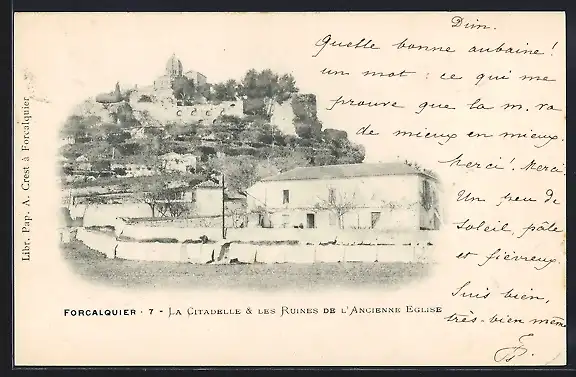 Dim.
Quelle bonne aubaine!
un mot : ce qui me
prouve que la m. va
de mieux en mieux.
Merci! Merci
Un peu de
soleil, pâle
et fiévreux.
Suis bien,
très-bien même
Libr. Pap. A. Crest à Forcalquier
FORCALQUIER · 7 - LA CITADELLE & LES RUINES DE L'ANCIENNE EGLISE